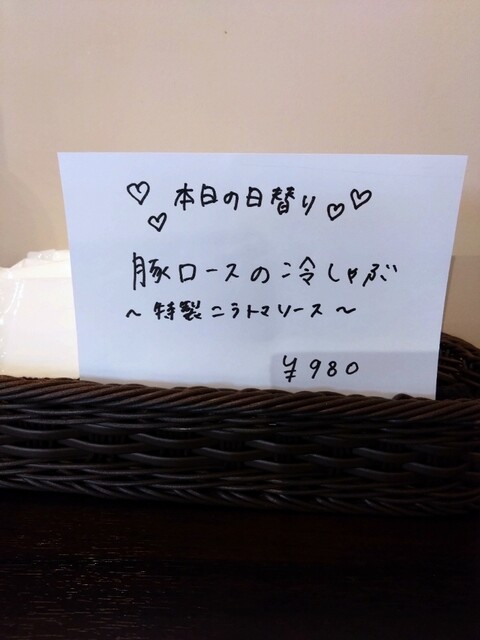 ♡ 本日の日替り ♡♡
♡
豚ロースの冷しゃぶ
～ 特製ニラトマソース ～
¥980